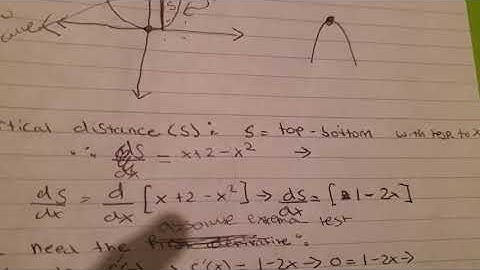 S
tical distance (s) ∴ s = top - bottom with resp. to x
∴ ds/dx = x+2-x² →
ds/dx = d/dx [x+2-x²] → ds/dx = [1-2x]
absolute extrema test
need the First derivative ∴
s'(x) = 1-2x → 0 = 1-2x →